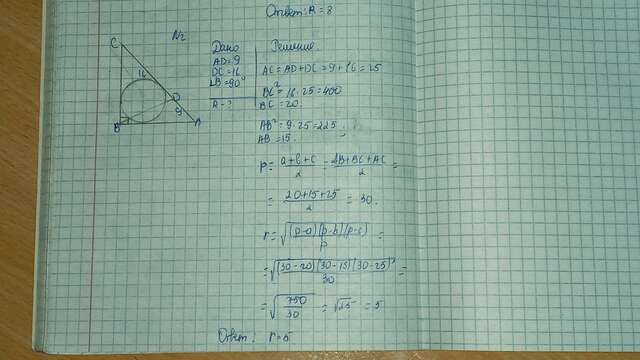 Ответ: R = 8
№2
C
16
D
9
B
A
Дано
AD = 9
DC = 16
∠B = 90°
R - ?
Решение.
AC = AD + DC = 9 + 16 = 25
BC² = 16 · 25 = 400
BC = 20.
AB² = 9 · 25 = 225;
AB = 15.
p = (a+b+c)/2 = (AB+BC+AC)/2 =
= (20+15+25)/2 = 30.
r = √((p-a)(p-b)(p-c)/p) =
= √((30-20)(30-15)(30-25)/30) =
= √(750/30) = √25 = 5
Ответ: r = 5